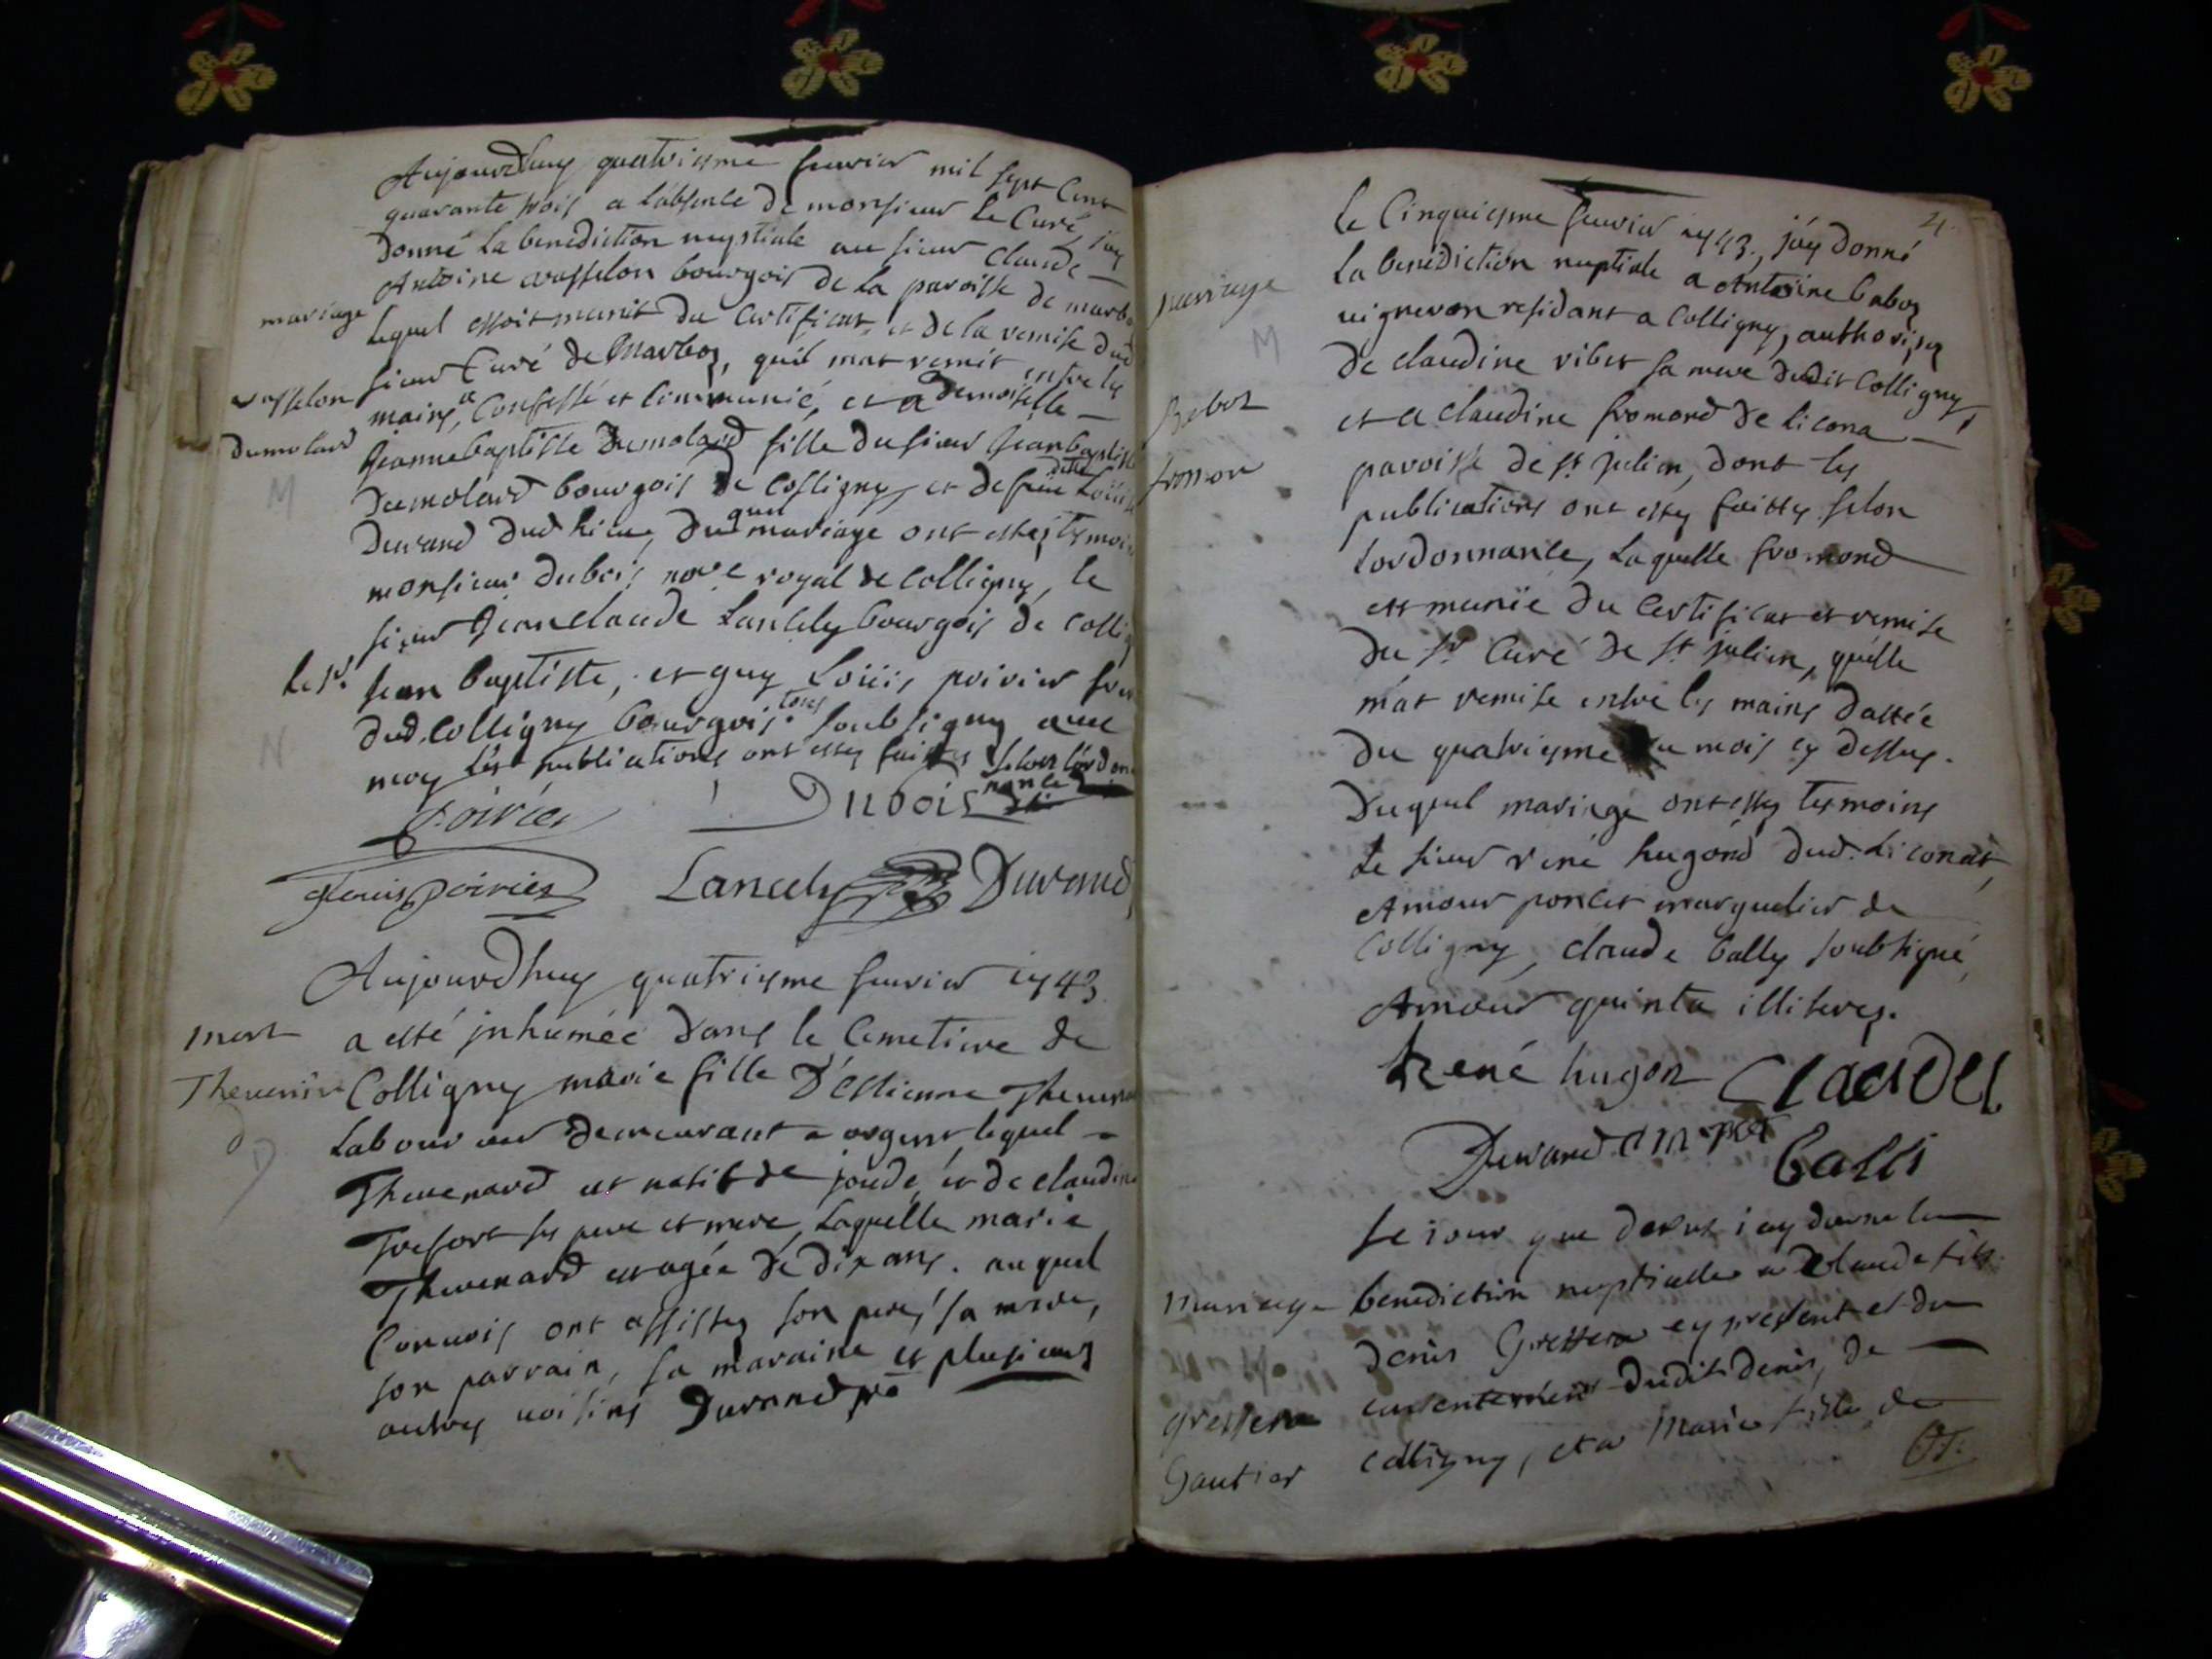 Aujourdhuy quatriesme feuvier mil sept cent
quarante trois a labsence de monsieur le Curé jay
donné la benediction nuptiale au sieur Claude
Antoine vasselon bourgois de la paroisse de marbo
mariage
lequel estoit munit du Certificat et de la remise dud
sieur Curé de Marboz, quil mat remit entre les
vasselon
mains, Confessé et Communié, et a demoiselle
dumolard
Jeanne baptiste dumolard fille du sieur Jean baptiste
M
dumolard bourgois de Colligny, et de feüe Loüise
Durand dud lieu, duquel mariage ont estes tesmoins
monsieur dubois nore royal de Colligny, le
sieur Jean claude Lancely bourgois de Colli
le sr.
Jean baptiste, et guy Loüis poirier
dud. Colligny bourgois. tous soubsignés auec
N
moy les publications ont estes faittes selon lordon
nance
Poirier Dubois
Louis Poirier Lancely Durand
Aujourdhuy quatriesme feuvier 1743
mort
a esté jnhumée dans le Cemetiere de
Thevenin
Colligny marie fille d'Estienne Thevenard
D
Laboureur demeurant a orgent, lequel
Thevenard est natif de joude, et de claudine
Trefort ses pere et mere, Laquelle marie
Thevenard est agée de dix ans. auquel
Convois ont assistes son pere, sa mere,
son parrain, sa maraine et plusieurs
autres voisins Durand ptre
21
le Cinquiesme feuvier 1743, jáy donné
mariage
La benédiction nuptiale a Antoine baboz
M
uigneron residant a Colligny, authorisez
de claudine vibert sa mere dudit Colligny,
Babot
et a claudine fromond de licona
fromon
paroisse de st julien, dont les
publications ont estes faittes selon
Lordonnance, Laquelle fromond
est munïe du Certificat et remise
du sr Curé de st julien, quélle
m'at remise entre les mains dattée
du quatriesme du mois cy dessus.
Duquel mariage ont estes tesmoins
Le sieur rené hugond dud. Liconat,
Amour poncet marguelier de
Colligny, claude bally soubsigné,
Amour quinta illiteres.
René hugon Claudel
Durand
balli
le iour que desus i ay donne la
mariage
benediction nuptialle a Claude fils
denis Gressera cy present et du
gressera
consentement dudit denis, de
Gautier
colligny, et a Marie fille de